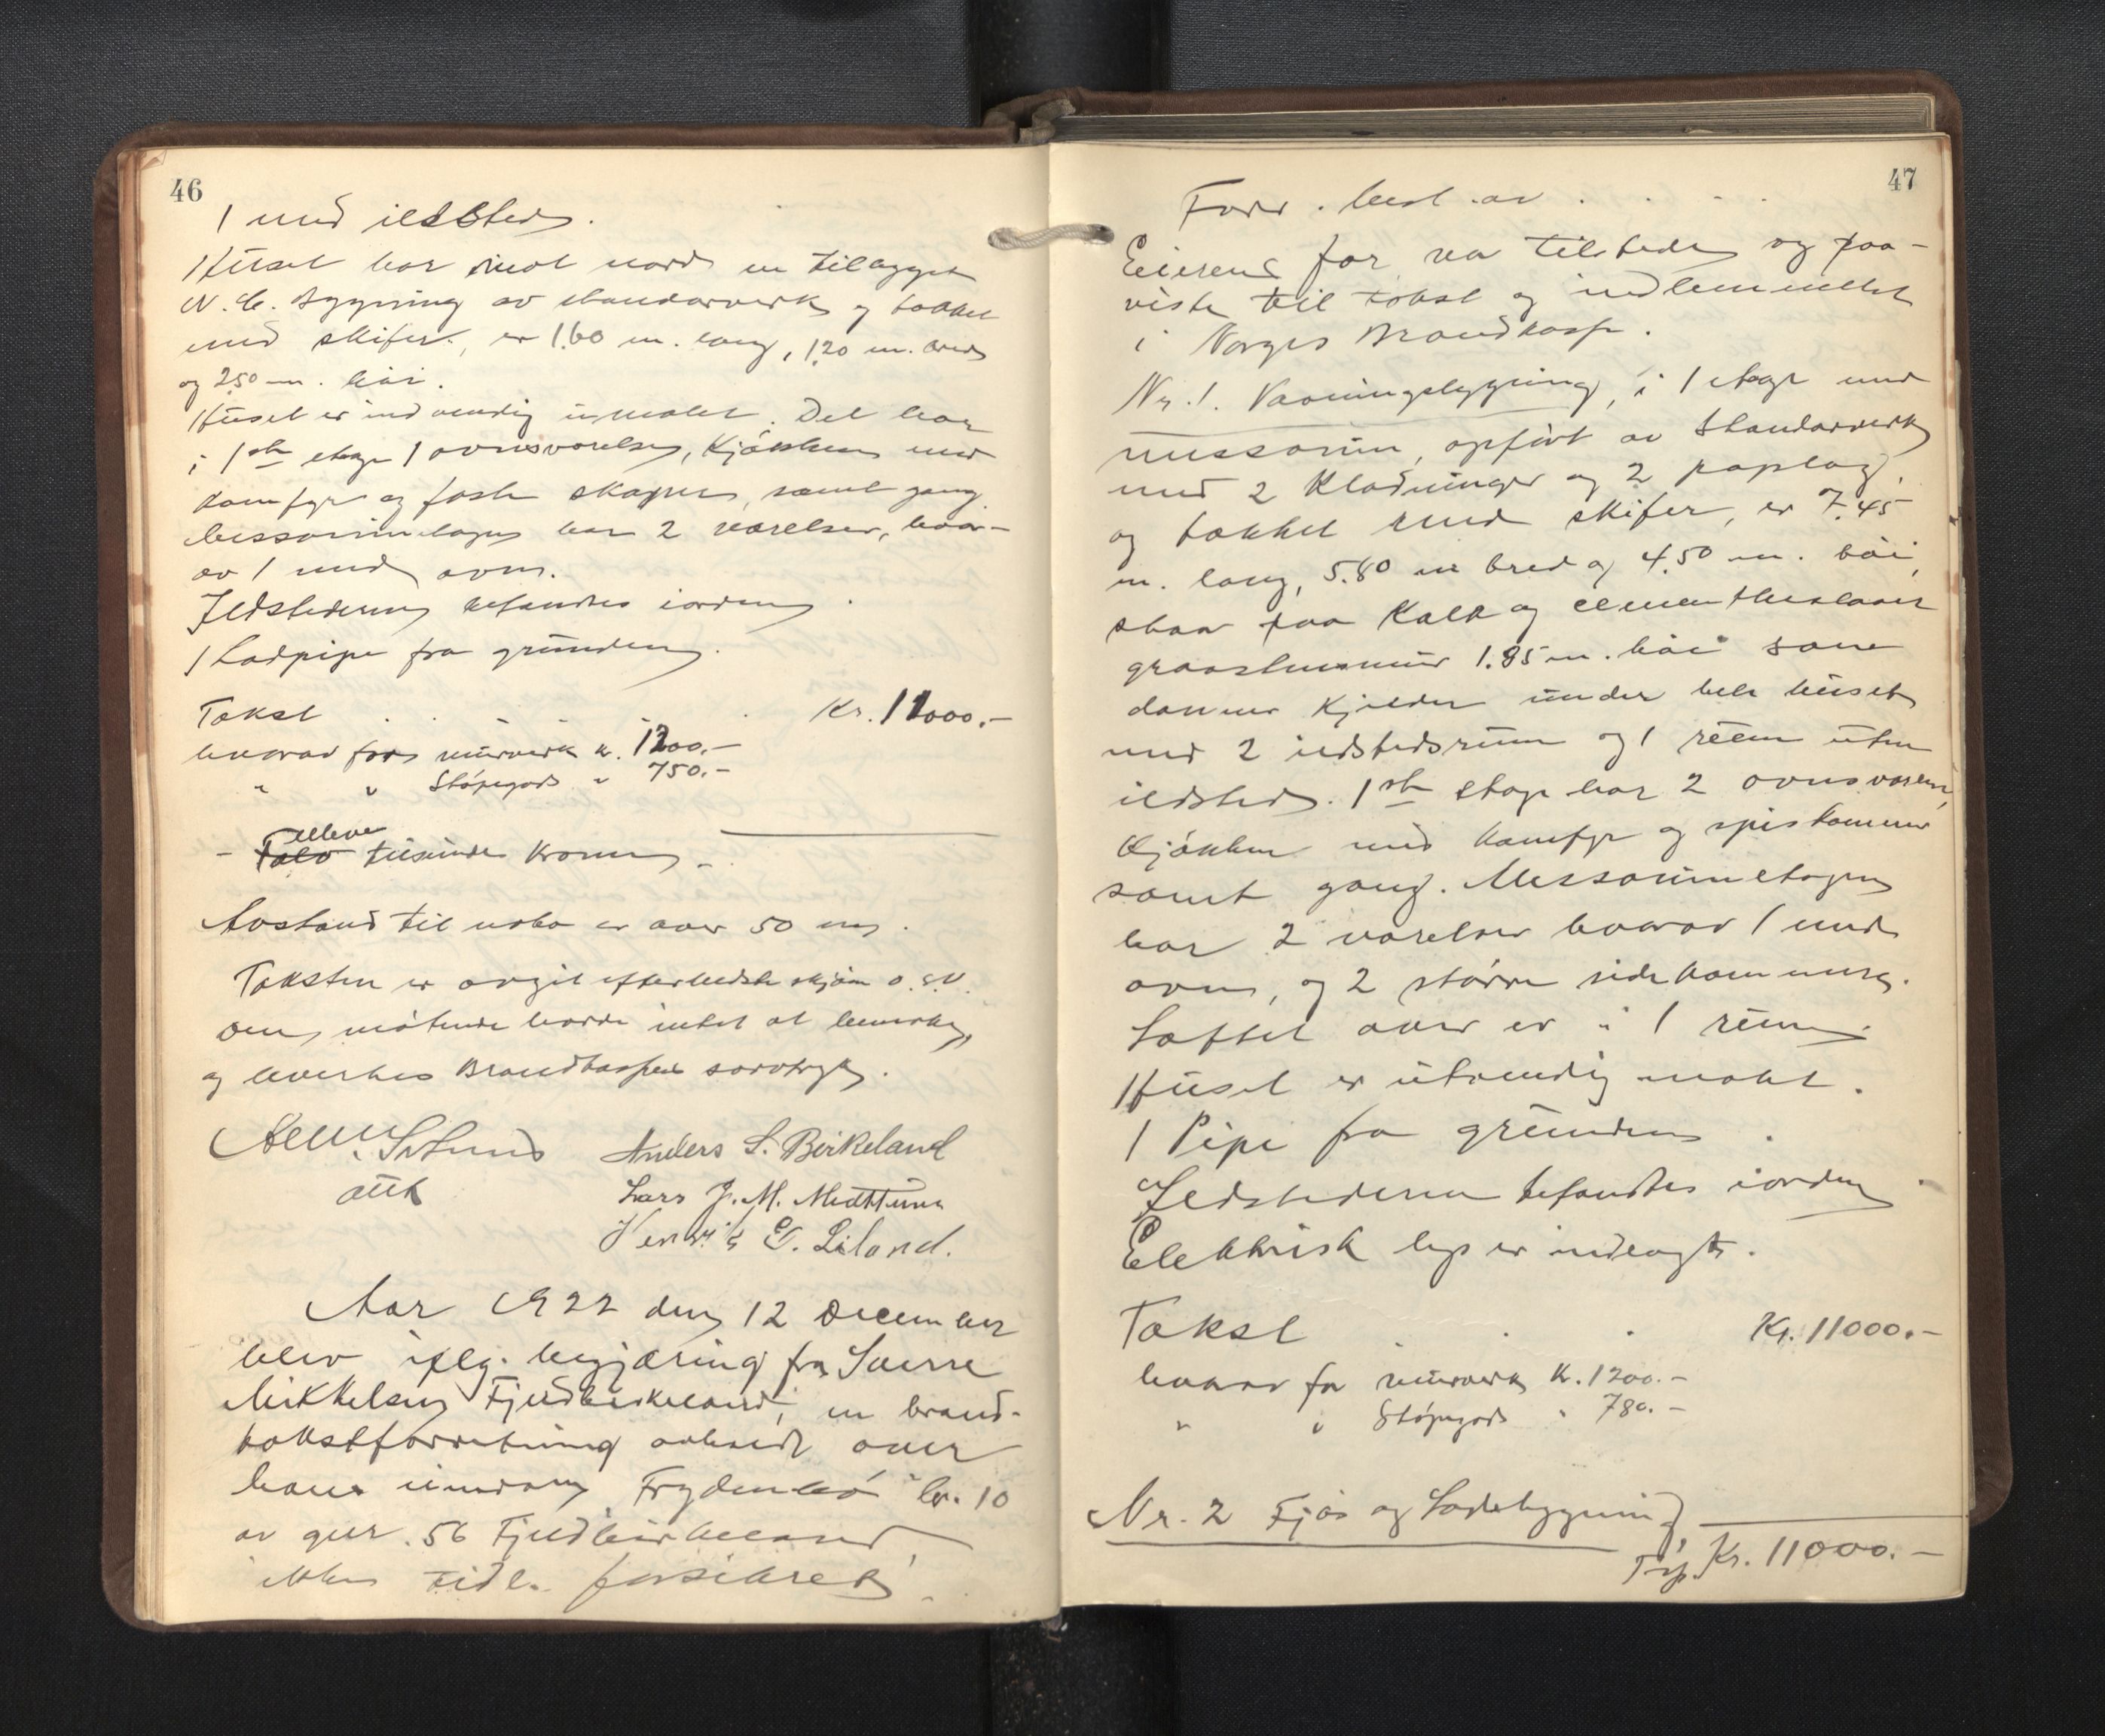 46
1 med ildsted.
Huset har mot nord en tilbygget
W.C. bygning av standarverk og takket
med skifer, er 1.60 m. lang, 1.20 m. bred
og 2.50 m. høi.
Huset er indvendig umalet. Det har
i 1ste etage 1 ovnsværelse, kjøkken med
komfyr og faste skaper, samt gang.
Messaninetagen har 2 værelser, hvor-
av 1 med ovn.
Ildstederne befandtes iorden.
1 Ladpipe fra grunden.
Takst . . . Kr. 11000.-
hvorav for murverk kr. 1200.-
" " Støpegods " 750.-
elleve
- Tolv tusinde kroner -
Avstand til nabo er over 50 m.
Taksten er avgit efter bedste skjøn o.s.v.
De møtende hadde intet at bemerke,
og leverkes Brandkassens særtryk.
Anders L. Birkeland
att Lars J. M. Midttun
Henrik G. Liland.
Aar 1922 den 12 December
blev iflg. begjæring fra Sverre
Mikkelsen Fjeldbirkeland, en brand-
takstforretning avholdt over
hans eiendom Frydenbø br. 10
av gnr. 56 Fjeldbirkeland,
ikke tidl. forsikret.
47
Forr. best. av . . . .
Eierens far var tilstede og paa-
viste til takst og indlemmelse
i Norges Brandkasse.
Nr. 1. Vaaningsbygning, i 1 etage med
messanin, opført av Standarverk
med 2 Klædninger og 2 paplag,
og takket med skifer, er 7.45
m. lang, 5.80 m bred og 4.50 m. høi,
staar paa Kalk og cementhuslaaet
graastensmur 1.85 m. høi som
danner Kjelder under hele huset
med 2 ildstedsrum og 1 rum uten
ildsted. 1ste etage har 2 ovnsværelser,
Kjøkken med komfyr og spiskammer
samt gang. Messaninetagen
har 2 værelser hvorav 1 med
ovn, og 2 større sidekammers.
Loftet over er i 1 rum.
Huset er utvendig malet.
1 Pipe fra grunden.
Ildstederne befandtes iorden
Elektrisk lys er indlagt.
Takst . . . Kr. 11000.-
hvorav for murverk Kr. 1200.-
" " Støpegods " 780.-
Nr. 2 Fjøs og Ladebygning,
Trsp. Kr. 11000.-